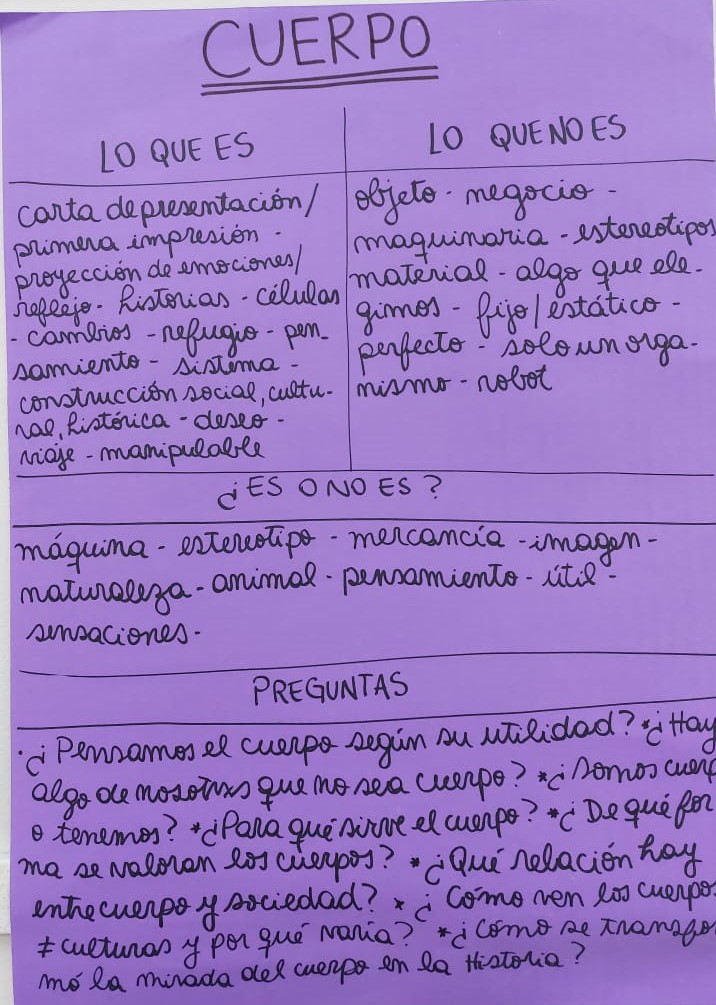 CUERPO
LO QUE ES
carta de presentación/
primera impresión -
proyección de emociones/
reflejo - historias - células
- cambios - refugio - pen-
samiento - sistema -
construcción social, cultu-
ral, histórica - deseo -
viaje - manipulable
LO QUE NO ES
objeto - negocio -
maquinaria - estereotipos
material - algo que ele-
gimos - fijo/estático -
perfecto - solo un orga-
nismo - robot
¿ES O NO ES?
máquina - estereotipo - mercancía - imagen -
naturaleza - animal - pensamiento - útil -
sensaciones -
PREGUNTAS
· ¿Pensamos el cuerpo según su utilidad? * ¿Hay
algo de nosotrxs que no sea cuerpo? * ¿Somos cuerp
o tenemos? * ¿Para qué sirve el cuerpo? * ¿De qué for
ma se valoran los cuerpos? * ¿Qué relación hay
entre cuerpo y sociedad? * ¿Cómo ven los cuerpos
≠ culturas y por qué varía? * ¿Cómo se transfor
mó la mirada del cuerpo en la Historia?